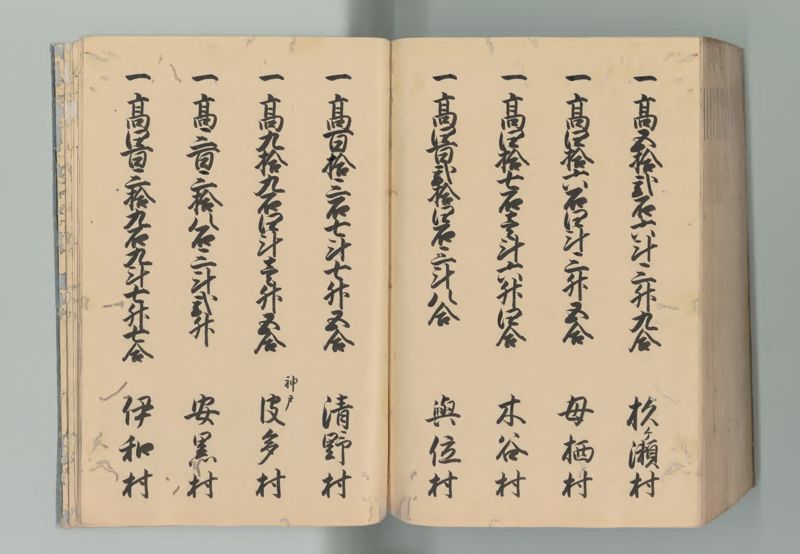 一 高五拾弐石六斗三升九合 杉ヶ瀬村
一 高四拾六石四斗三升五合 母栖村
一 高四拾七石壱斗六升四合 木谷村
一 高四百弐拾四石三斗八合 與位村
一 高百拾三石七斗七升五合 清野村
一 高九拾九石四斗壱升五合 神戸 皮多村
一 高三百三拾八石三斗弐升 安黒村
一 高四百三拾九石九斗七升七合 伊和村